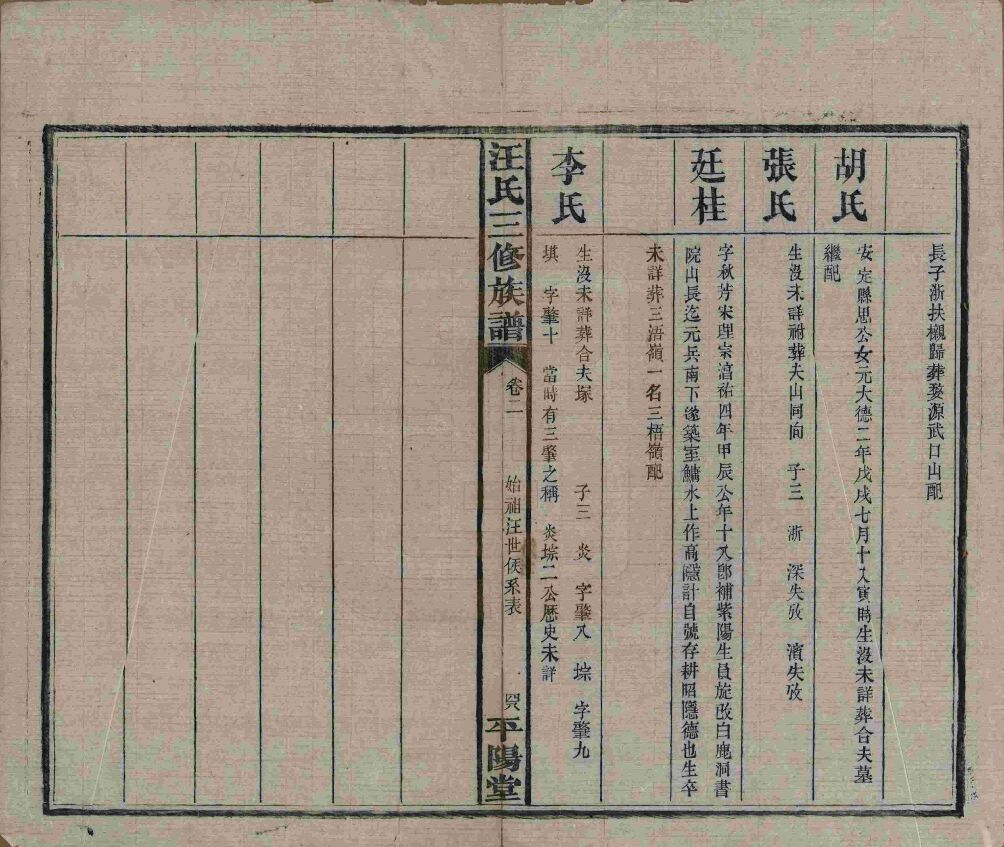 長子浙扶櫬歸葬婺源武口山配
胡氏
安定縣思公女元大德二年戊戌七月十八寅時生沒未詳葬合夫墓
繼配
張氏
生沒未詳祔葬夫山同向 子三 浙 深失攷 濱失攷
廷桂
字秋芳宋理宗淳祐四年甲辰公年十八郎補紫陽生員旋改白鹿洞書
院山長迄元兵南下遂築室鱅水上作高隱計自號存耕昭隱德也生卒
未詳葬三浯嶺一名三梧嶺配
李氏
生沒未詳葬合夫塚 子三 炎 字肇八 垿 字肇九
堪 字肇十 當時有三肇之稱 炎垿二公歷史未詳
汪氏三修族譜
卷二
始祖汪世侯系表
平陽堂